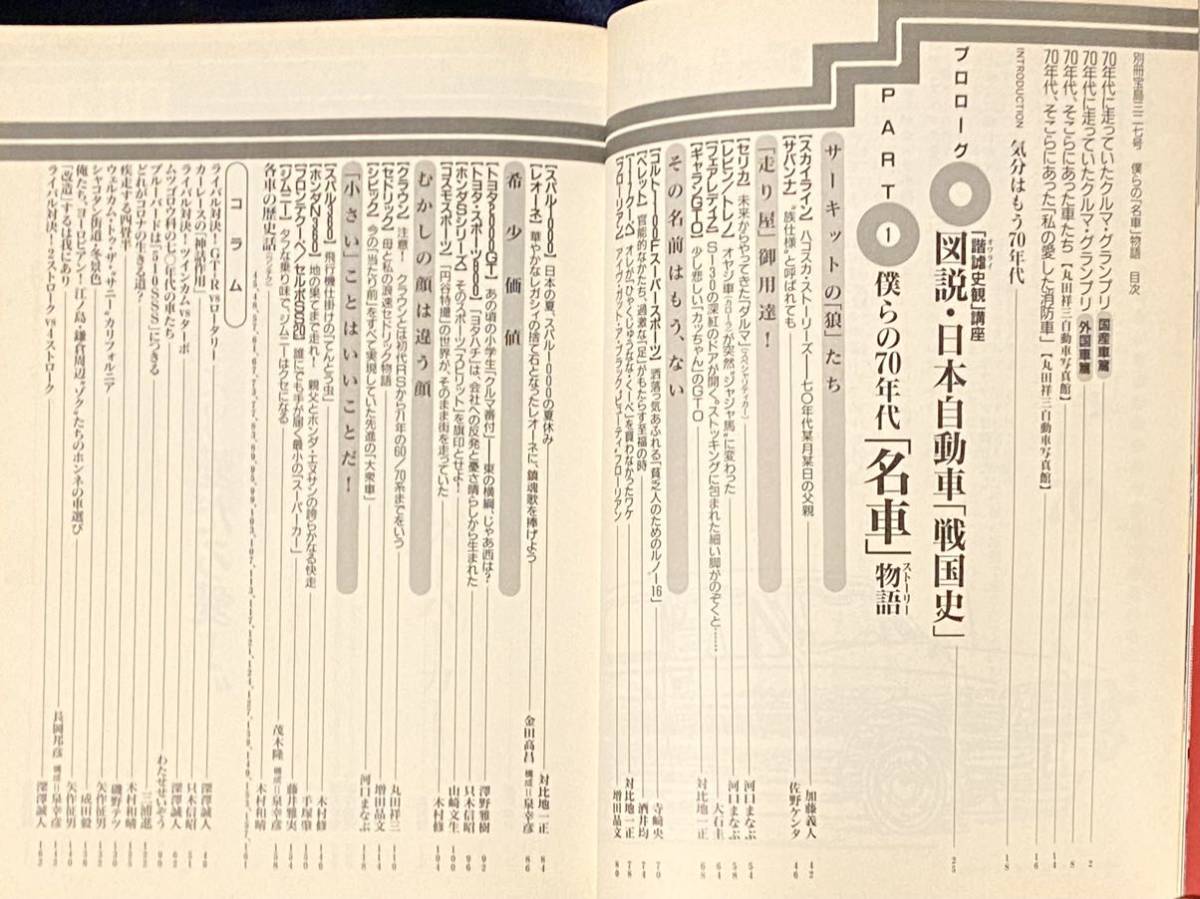 別冊宝島三二七号 僕らの「名車」物語 目次
70年代に走っていたクルマ・グランプリ 国産車篇 2
70年代に走っていたクルマ・グランプリ 外国車篇 8
70年代、そこらにあった車たち【丸田祥三自動車写真館】 14
70年代、そこらにあった「私の愛した消防車」【丸田祥三自動車写真館】 16
INTRODUCTION 気分はもう70年代 18
プロローグ
「諧謔史観」講座
図説・日本自動車「戦国史」 25
PART 1 僕らの70年代「名車」物語 ストーリー
サーキットの「狼」たち
【スカイライン】ハコスカ・ストーリーズ——七〇年代某月某日の父親 加藤義人 42
【サバンナ】“族仕様”と呼ばれても 佐野ケンタ 46
「走り屋」御用達!
【セリカ】未来からやってきた「ダルマ」 河口まなぶ 54
【レビン/トレノ】オヤジ車(カローラ)が突然“ジャジャ馬”に変わった 河口まなぶ 58
【フェアレディZ】S130の深紅のドアが開く。ストッキングに包まれた細い脚がのぞくと…… 大石圭 64
【ギャランGTO】少し悲しい「カッちゃん」のGTO 対比地一正 68
その名前はもう、ない
【コルト1100Fスーパースポーツ】洒落っ気あふれる「貧乏人のためのルノー16」 寺崎央 70
【ベレット】官能的なかたち、過激な「足」がもたらす至福の時 酒井均 74
オレが“ひゃくじゅうななクーペ”を買わなかったワケ 対比地一正 78
【フローリアン】 増田晶文 80
【スバル1000】日本の夏、スバル1000の夏休み 対比地一正 84
【レオーネ】華やかなレガシィの捨て石となったレオーネに、鎮魂歌を捧げよう 金田高昌 構成=泉幸彦 86
希少価値
【トヨタ2000GT】あの頃の小学生「クルマ番付」——東の横綱、じゃあ西は? 澤野雅樹 92
【トヨタ・スポーツ800】「ヨタハチ」は、会社への反発と憂さ晴らしから生まれた 只木信昭 96
【ホンダSシリーズ】そのスポーツ「スピリット」を旗印とせよ! 山崎文生 100
【コスモスポーツ】「円谷特撮」の世界が、そのまま街を走っていた 木村修 104
むかしの顔は違う顔
【クラウン】注意! クラウンとは初代RSから八年の60/70系までをいう 丸田祥三 110
【セドリック】母と私の浪速セドリック物語 増田晶文
【シビック】今の「当たり前」をすべて実現していた先進の「大衆車」 河口まなぶ 118
「小さい」ことはいいことだ!
【スバル360】飛行機仕掛けの「てんとう虫」 木村修 146
【ホンダN360】地の果てまで走れ! 親父とホンダ・エヌサンの誇らかなる快走 手塚肇 150
【フロンテクーペ/セルボSS20】誰にでも手が届く最小の「スーパーカー」 藤井雅実 154
【ジムニー】タフな乗り味で、ジムニーはクセになる 茂木隆 構成=泉幸彦 158
各車の歴史話 木村和晴
コラム
ライバル対決!GT-R vs ロータリー 深澤誠人
カーレースの「神話作用」 只木信昭
ライバル対決!ツインカム vs ターボ 深澤誠人 62
ムツゴロウ科の七〇年代の車たち わたせせいぞう 90
ブルーバードは「510SSS」につきる 三浦進
どれがコロナの生きる道? 木村和晴
疾走する四畳半 磯野テツ
ウェルカム・トゥ・ザ・“サニー”カリフォルニア 矢作征男
シャコタン街道・冬景色 成田毅 136
俺たち、ヨーロピアン! 江ノ島・鎌倉周辺“ゾク”たちのホンネの車選び 矢作征男 140
「改造」するは我にあり 長岡邦彦 構成=泉幸彦
ライバル対決!2ストローク vs 4ストローク 深澤誠人 162